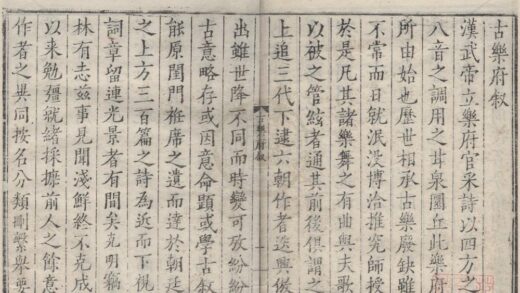 古樂府叙
漢武帝立樂府官采詩以四方之
八音之調用之甘泉圜丘此樂府
所由始也歷世相承古樂廢缺雖
不常而日就泯没博洽推究師授
於是凡其諸樂舞之有曲與夫歌
以被之管絃者通其前後俱謂之
上追三代下逮六朝作者迭興倐
出雖世降不同而時變可攷紛紛
古樂府叙
古意略存或因意命題或學古叙
能原閨門袵席之遺而達於朝廷
之上方三百篇之詩為近而下視
詞章留連光景者有間矣克明竊
林有志茲事見聞淺鮮終不克成
以来勉彊就緒採摭前人之餘意
作者之異同按名分類刪繁舉要